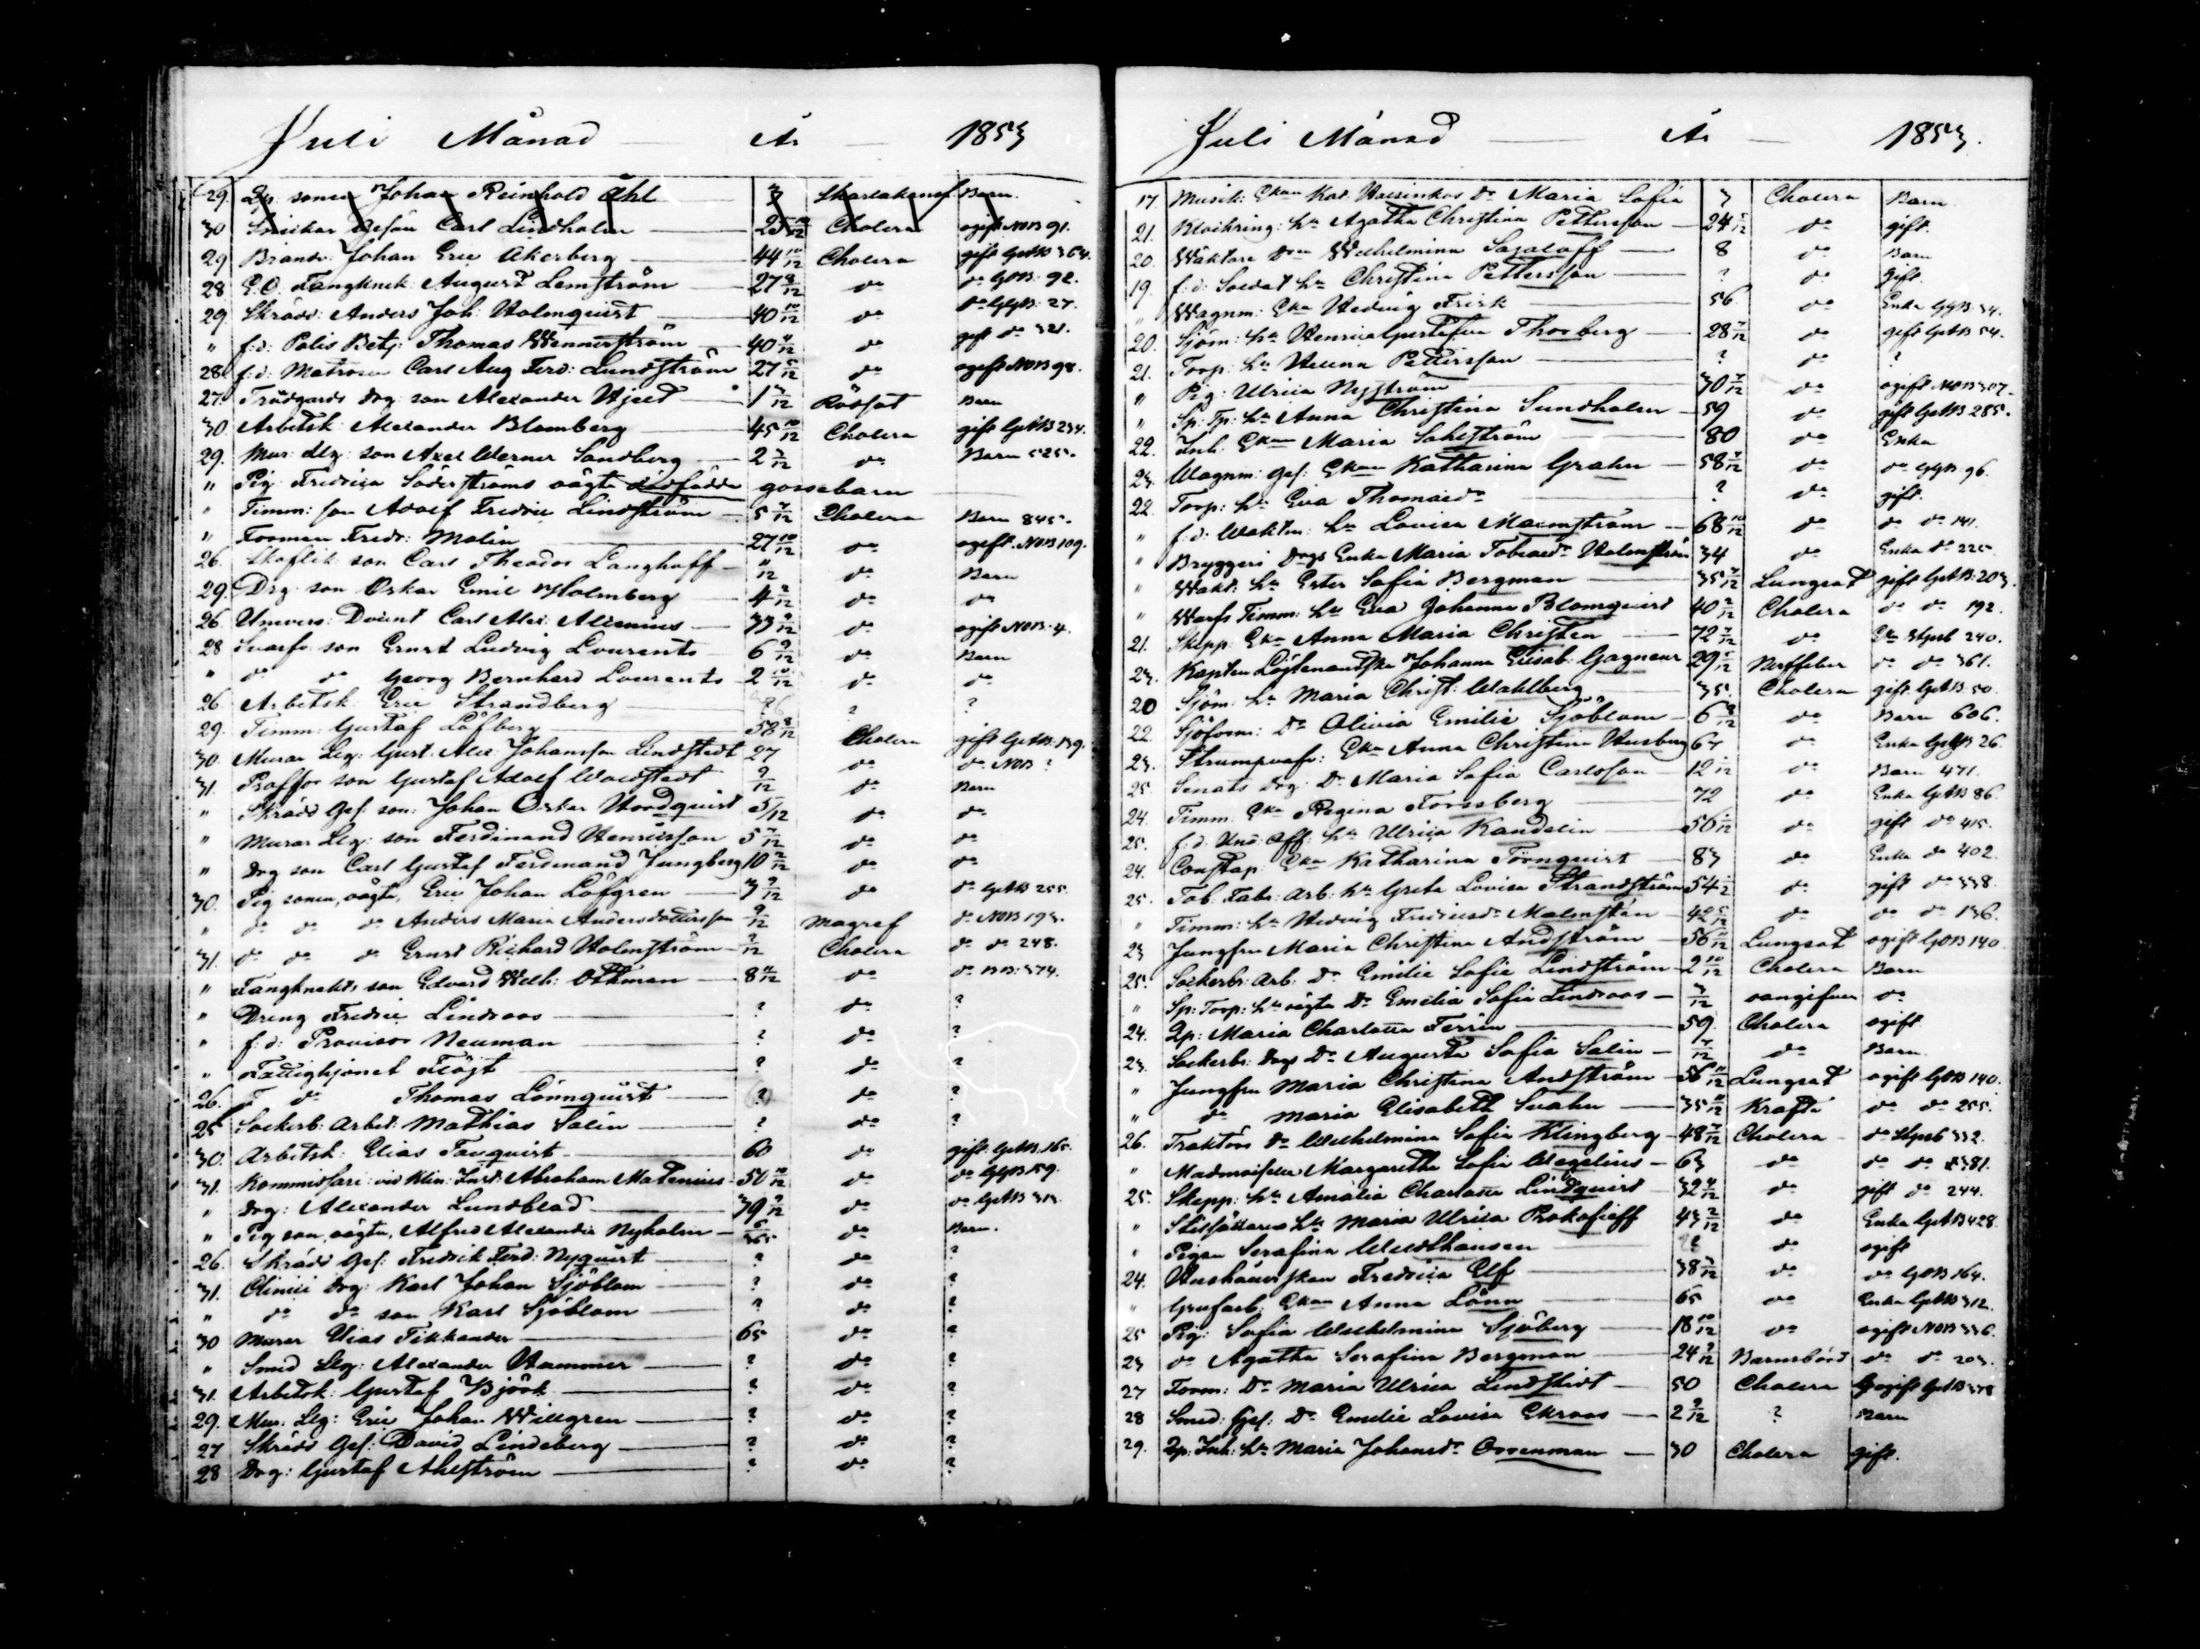 Juli Månad — År — 1853
29. Sp: sonen Johan Reinhold Öhl 3 Skarlakansf Barn.
30 Carl Lindholm 25 10/12 Cholera ogift NOB 91.
29 Brandv: Johan Eric Åkerberg 44 10/12 Cholera gift GAB 364.
28 G.O. Fångknek: August Lemström 27 9/12 do do GOB. 92.
29. Skrädd: Anders Joh: Holmquist 40 10/12 do do GGB. 27.
" f:d: Polis Betj: Thomas Wennerström 40 4/12 do gift do 321.
28. f:d: Matrosen Carl Aug Ferd: Lundström 27 5/12 do ogift NOB 98.
27. Trädgårds drg: son Alexander Hjelt 1 3/12 Rödsot Barn
30. Arbetsk: Alexander Blomberg 45 10/12 Cholera gift GAB 234.
29. Mur: son Axel Werner Sandberg 2 3/12 do Barn 525.
" Pig: Fredrica Söderströms oägta dödfödda gossebarn
" Timm: son Adolf Fredric Lindström 5 7/12 Cholera Barn 845.
" Forman Fredr: Malin 27 10/12 do ogift. NOB 109.
26. son Carl Theodor Langhoff 11/12 do Barn
29. Drg: son Oskar Emil Holmberg 4 2/12 do do
26. Univers: Docent Carl Alex: Alcenius 33 9/12 do ogift NOB. 4.
28 Svarfv: son Ernst Ludvig Lourents 6 9/12 do Barn
" do do Georg Bernhard Lourents 2 10/12 do do
26 Arbetsk: Eric Strandberg ? ? ?
29. Timm: Gustaf Löfberg 58 8/12 Cholera gift GAB. 139.
30. Murar Lrg: Gust: Alex Johansson Lindstedt 27 do do NOB ?
31. Proffoss son Gustaf Adolf Waldstedt 9/12 do Barn
" Skrädd Ges: son: Johan Oskar Nordquist 5/12 do do
" Murar Lrg: son Ferdinand Henriksson 5 7/12 do do
" Drg son Carl Gustaf Ferdinand Ljungberg 10 2/12 do do
30. Pig sonen, oägta, Eric Johan Löfgren 3 9/12 do do GAB 255.
" do do do Anders Maria Andersdotterson 9/12 Magref do NOB 193.
31. do do do Ernst Richard Holmström 2/12 Cholera do do 248.
" Fångknekts son Edvard Wilh: Othman 8 11/12 do do BB: 574.
" Dreng Fredric Lindroos ? do ?
" f:d: Provisor Neuman ? do ?
" Fattighjonet Flöjt ? do ?
26. do Thomas Lönnquist ? do ?
25 Sockerb: Arbet: Mathias Salin ? do ?
30. Arbetsk: Elias Fanquist 60 do gift GAB. 165.
31. Kommissari: vid Klin: Inst: Abraham Matenius 50 10/12 do do GGB 159.
" Drg: Alexander Lundblad 39 7/12 do do GAB 313.
" Pig son, oägta, Alfred Alexander Nyholm 5/365 do Barn.
26. Skrädd Ges: Fredrik Ferd: Nyquist ? do ?
31. Clinici Drg: Karl Johan Sjöblom ? do ?
" do do son Karl Sjöblom ? do ?
30 Murar Elias Tikkander 65 do ?
" Smed Lrg: Alexander Hammer ? do ?
31. Arbetsk: Gustaf Björk ? do ?
29. Mur: Lrg: Eric Johan Willgren ? do ?
27 Skrädd Ges: David Lindeberg ? do ?
28 Drg: Gustaf Ahlström ? do ?
Juli Månad — År — 1853.
17 Musik: Enkan Kat: do Maria Sofia 3 Cholera Barn
21. hu Agatha Christina Pettersson 24 5/12 do gift.
20. Wäktare Wilhelmina 8 do Barn
19. f:d: Soldat hu Christina Pettersson ? do gift
" Wagnm: Eka Hedvig Frisk 56 do Enka GGB 34.
20. Sjöm: hu Henrica Gustafva Thorberg 28 7/12 do gift GAB 54.
21. Torp: hu Helena Pettersson ? do ?
" Pig: Ulrica Nyström 30 7/12 do ogift NOB 307.
" Sp: Tp: hu Anna Christina Sundholm 59 do gift GAB 285.
22. Inh: Enkan Maria Sahlström 80 do Enka
23. Wagnm: Ges: Enkan Katharina Grahn 58 7/12 do do GGB. 96.
22. Torp: hu Eva Thomasdr ? do gift.
" f:d: Waktm: hu Lovisa Malmström 68 10/12 do do do 141.
" Bryggeri Drgs Enka Maria Tobiasdr Holmström 34 do Enka do 225.
" Wakt: hu Ester Sofia Bergman 35 7/12 Lungsot gift GAB. 203.
" Warfs Timm: hu Eva Johanna Blomquist 40 2/12 Cholera do do 192.
21. Skepp: Eka Anna Maria Christen 72 7/12 do 240.
23. Kapten Löjtenantska Johanna Elisab: Gagneur 29 5/12 Nerffeber do do 361.
20 Sjöm: hu Maria Christ: Wahlberg 35. Cholera gift GAB. 50.
22. Sjöform: Dr Olivia Emilie Sjöblom 6 8/12 do Barn 606.
23. Strumpväfv: Eka Anna Christina Husberg do Enka GAB 26.
25. Senats Drg: Dr Maria Sofia Carlsson 12 1/12 do Barn 471.
24. Timm: Eka Regina Forssberg 72 do Enka GAB 86.
25. f:d: Und: Off: hu Ulrica Kandelin 56 1/12 do gift do 415.
24. Constap: Eka Katharina Törnquist 83 do Enka do 402.
25. Tob: Fabr: Arb: hu Greta Lovisa Strandström 54 1/2 do gift do 338.
" Timm: hu Hedvig Fredricsdr Malmstén 42 5/12 do do do 136.
23 Jungfru Maria Christina Andström 56 11/12 Lungsot ogift GOB 140.
25. Sockerbr: Arb: Dr Emilie Sofie Lindström 2 10/12 Cholera Barn
" Sp: Torp: hu oägta Dr Emilia Sofia Lindroos 3/12 oangifven do
24. Qp: Maria Charlotta Ferrin 59. Cholera ogift
23. Sockerbr: Drgs Dr Augusta Sofia Salin 7/12 do Barn
" Jungfru Maria Christina Andström 56 11/12 Lungsot ogift GOB 140.
" do Maria Elisabeth Svahn 35 11/12 Kräfta do do 255.
26. Traktörs Dr Wilhelmina Sofia Klingberg 48 7/12 Cholera do 332.
" Madmoiselle Margaretha Sofia Wegelius 63 do do do 381.
25. Skepp: hu Amalia Charlotta Lindquist 32 4/12 do gift do 244.
" hu Maria Ulrica Prokofieff 43 2/12 do Enka GAB 428.
" Pigan Serafina Weldthausen do ogift
24. Hushållerskan Fredrica Elf 38 3/12 do do GOB 164.
" Grufarb: Enkan Anna Lönn 65 do Enka GAB 312.
25 Pig: Sofia Wilhelmina Sjöberg 18 10/12 do ogift NOB 336.
23 do Agatha Serafina Bergman 24 9/12 Barnsbörd do do 203.
27 Form: Dr Maria Ulrica Lindstedt 50 Cholera ogift GAB 378
28 Smed: Ges: Dr Emilie Lovisa Ekroos 2 9/12 ? Barn
29. Qp: Inh: hu Maria Johansdr Ossenman 30 Cholera gift.